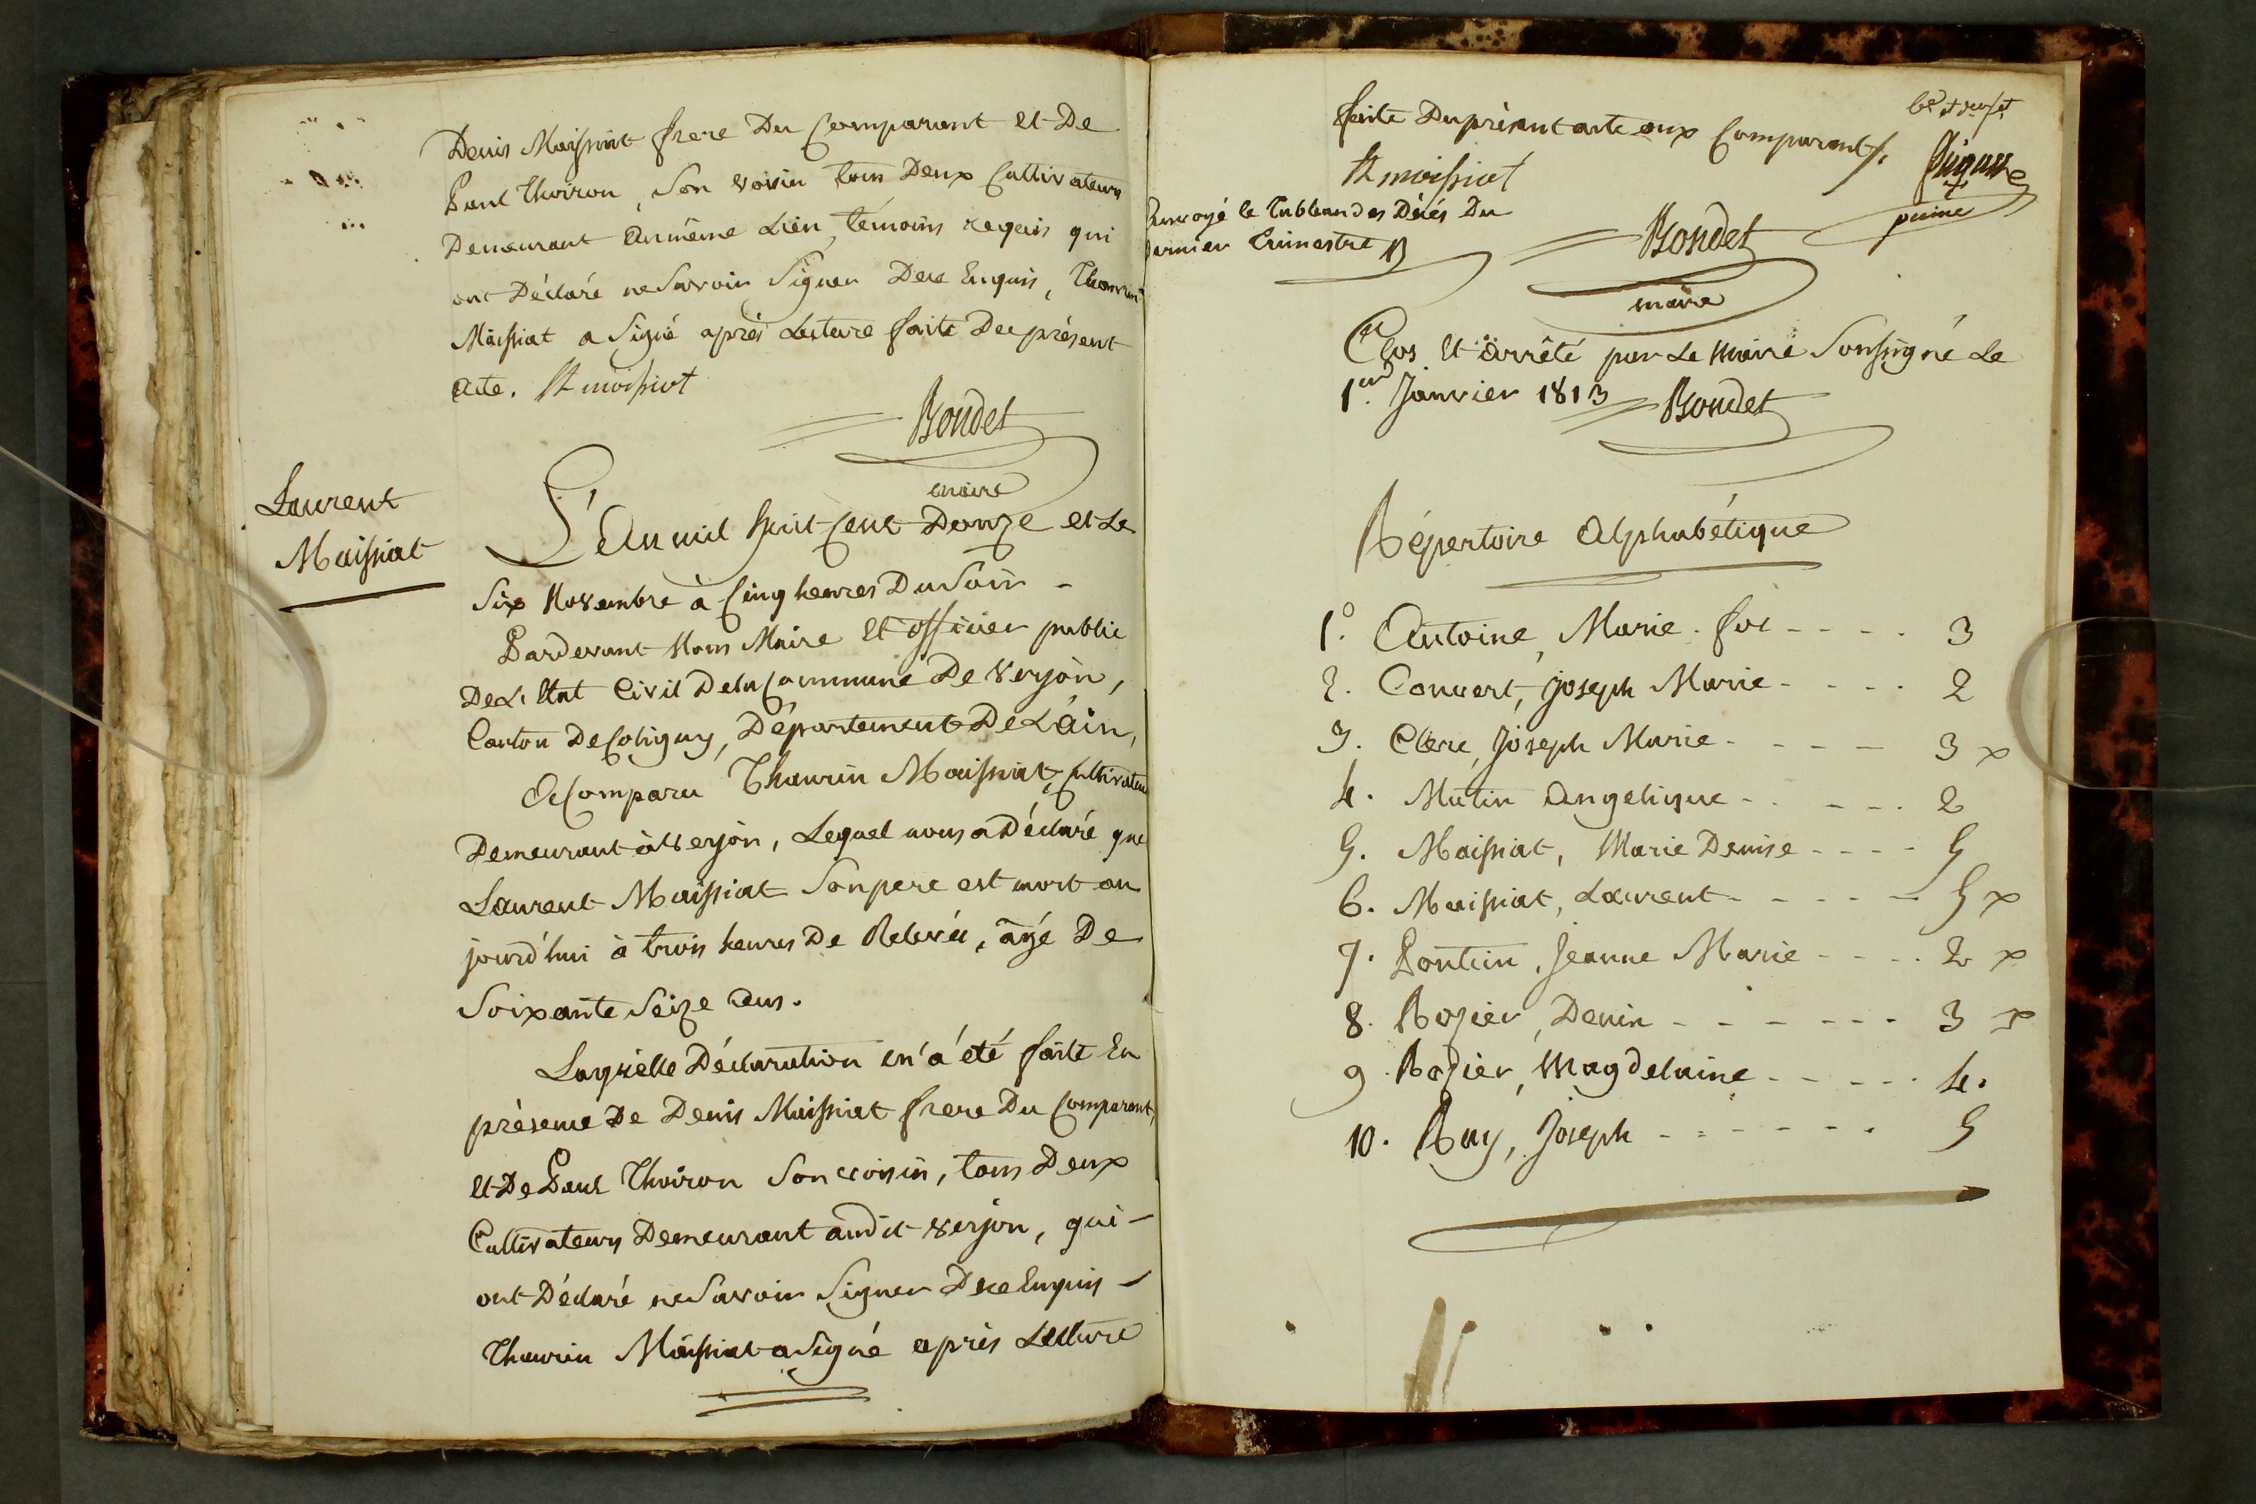 Denis Maissiat frere Du Comparant et De
Paul Thoiron, Son voisin tous Deux Cultivateurs
Demeurant Aumême Lieu, témoins requis qui
ont Déclaré ne Savoir Signer Dece Enquis, Thaurin
Maissiat a Signé après Lecture faite Du présent
Acte. th maissiat
Bondet
maire
Laurent
Maissiat
L'An mil huit Cent Douze et Le
Six Novembre à Cinq heures Du Soir -
Pardevant Nous Maire Et officier public
De L'Etat Civil Dela Commune De Verjon,
Canton De Coligny, Département De L'ain,
A Comparu Thaurin Maissiat, Cultivateur
Demeurant à Verjon, Lequel nous a Déclaré que
Laurent Maissiat Son pere est mort au
jourd'hui à trois heures De Relevée, âgé De
Soixante Seize ans.
Laquelle Déclaration m'a été faite En
présence De Denis Maissiat frere Du Comparant,
et De Paul Thoiron Son voisin, tous Deux
Cultivateurs Demeurant audit Verjon, qui -
ont Déclaré ne Savoir Signer Dece Enquis -
Thaurin Maissiat a Signé après Lecture
faite Du présent acte aux Comparants.
th maissiat
Envoyé le Tableau des Décés Du
dernier Trimestre B
Bondet
maire
Clos Et arrêté par Le Maire Soussigné Le
1er Janvier 1813 Bondet
Répertoire Alphabétique
1°. Antoine, Marie . foi - - - - 3
2. Convert, Joseph Marie - - - - 2
3. Clerc, Joseph Marie - - - - 3 x
4. Mutin Angelique - - - - - 2
5. Maissiat, Marie Denise - - - - 5
6. Maissiat, Laurent - - - - - 5 x
7. Pontein, Jeanne Marie - - - - 2 x
8. Rozier, Denis - - - - - - 3 x
9. Rozier, Magdelaine - - - - - 4.
10. Ray, Joseph - - - - - - 5